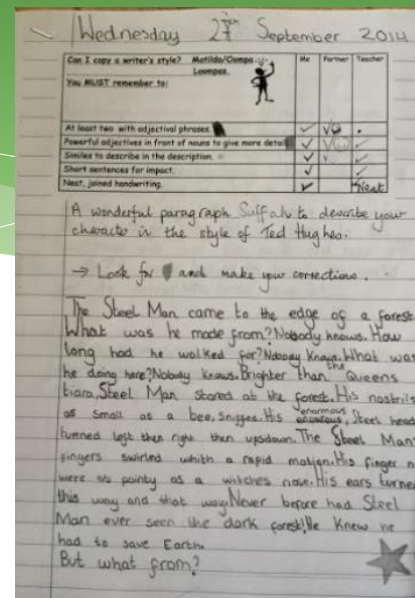 Wednesday 27th September 2014
Can I copy a writer's style? Matilda/Oompa Loompas.
Me Partner Teacher
You MUST remember to:
At least two with adjectival phrases.
Powerful adjectives in front of nouns to give more detail
Similes to describe in the description.
Short sentences for impact.
Neat, joined handwriting.
Neat
A wonderful paragraph Suffah to describe your
character in the style of Ted Hughes.
→ Look for and make your corrections.
The Steel Man came to the edge of a forest.
What was he made from? Nobody knows. How
long had he walked for? Nobody knows. What was
he doing here? Nobody knows. Brighter than the Queens
tiara, Steel Man stared at the forest. His nostrils
as small as a bee, snigged. His enormous Steel head
turned left then right then upsdown. The Steel Mans
fingers swirled whith a rapid motion. His finger n
were as pointy as a witches nose. His ears turned
this way and that way. Never before had Steel
Man ever seen the dark forest! He knew he
had to save Earth.
But what from?